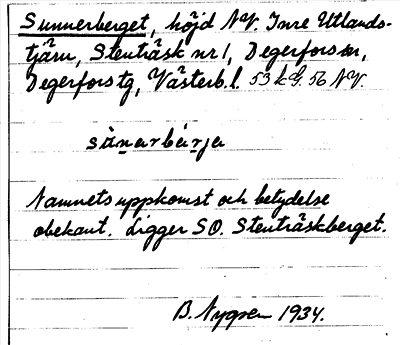 Sunnerberget, höjd NV. Inre Utlands-
tjärn, Stenträsk nr 1, Degerfors sn,
Degerfors tg, Västerb. l. 53 k G. 56 NV.
sànarbàrja
Namnets uppkomst och betydelse
obekant. Ligger SO. Stenträskberget.
B. Nygren 1934.